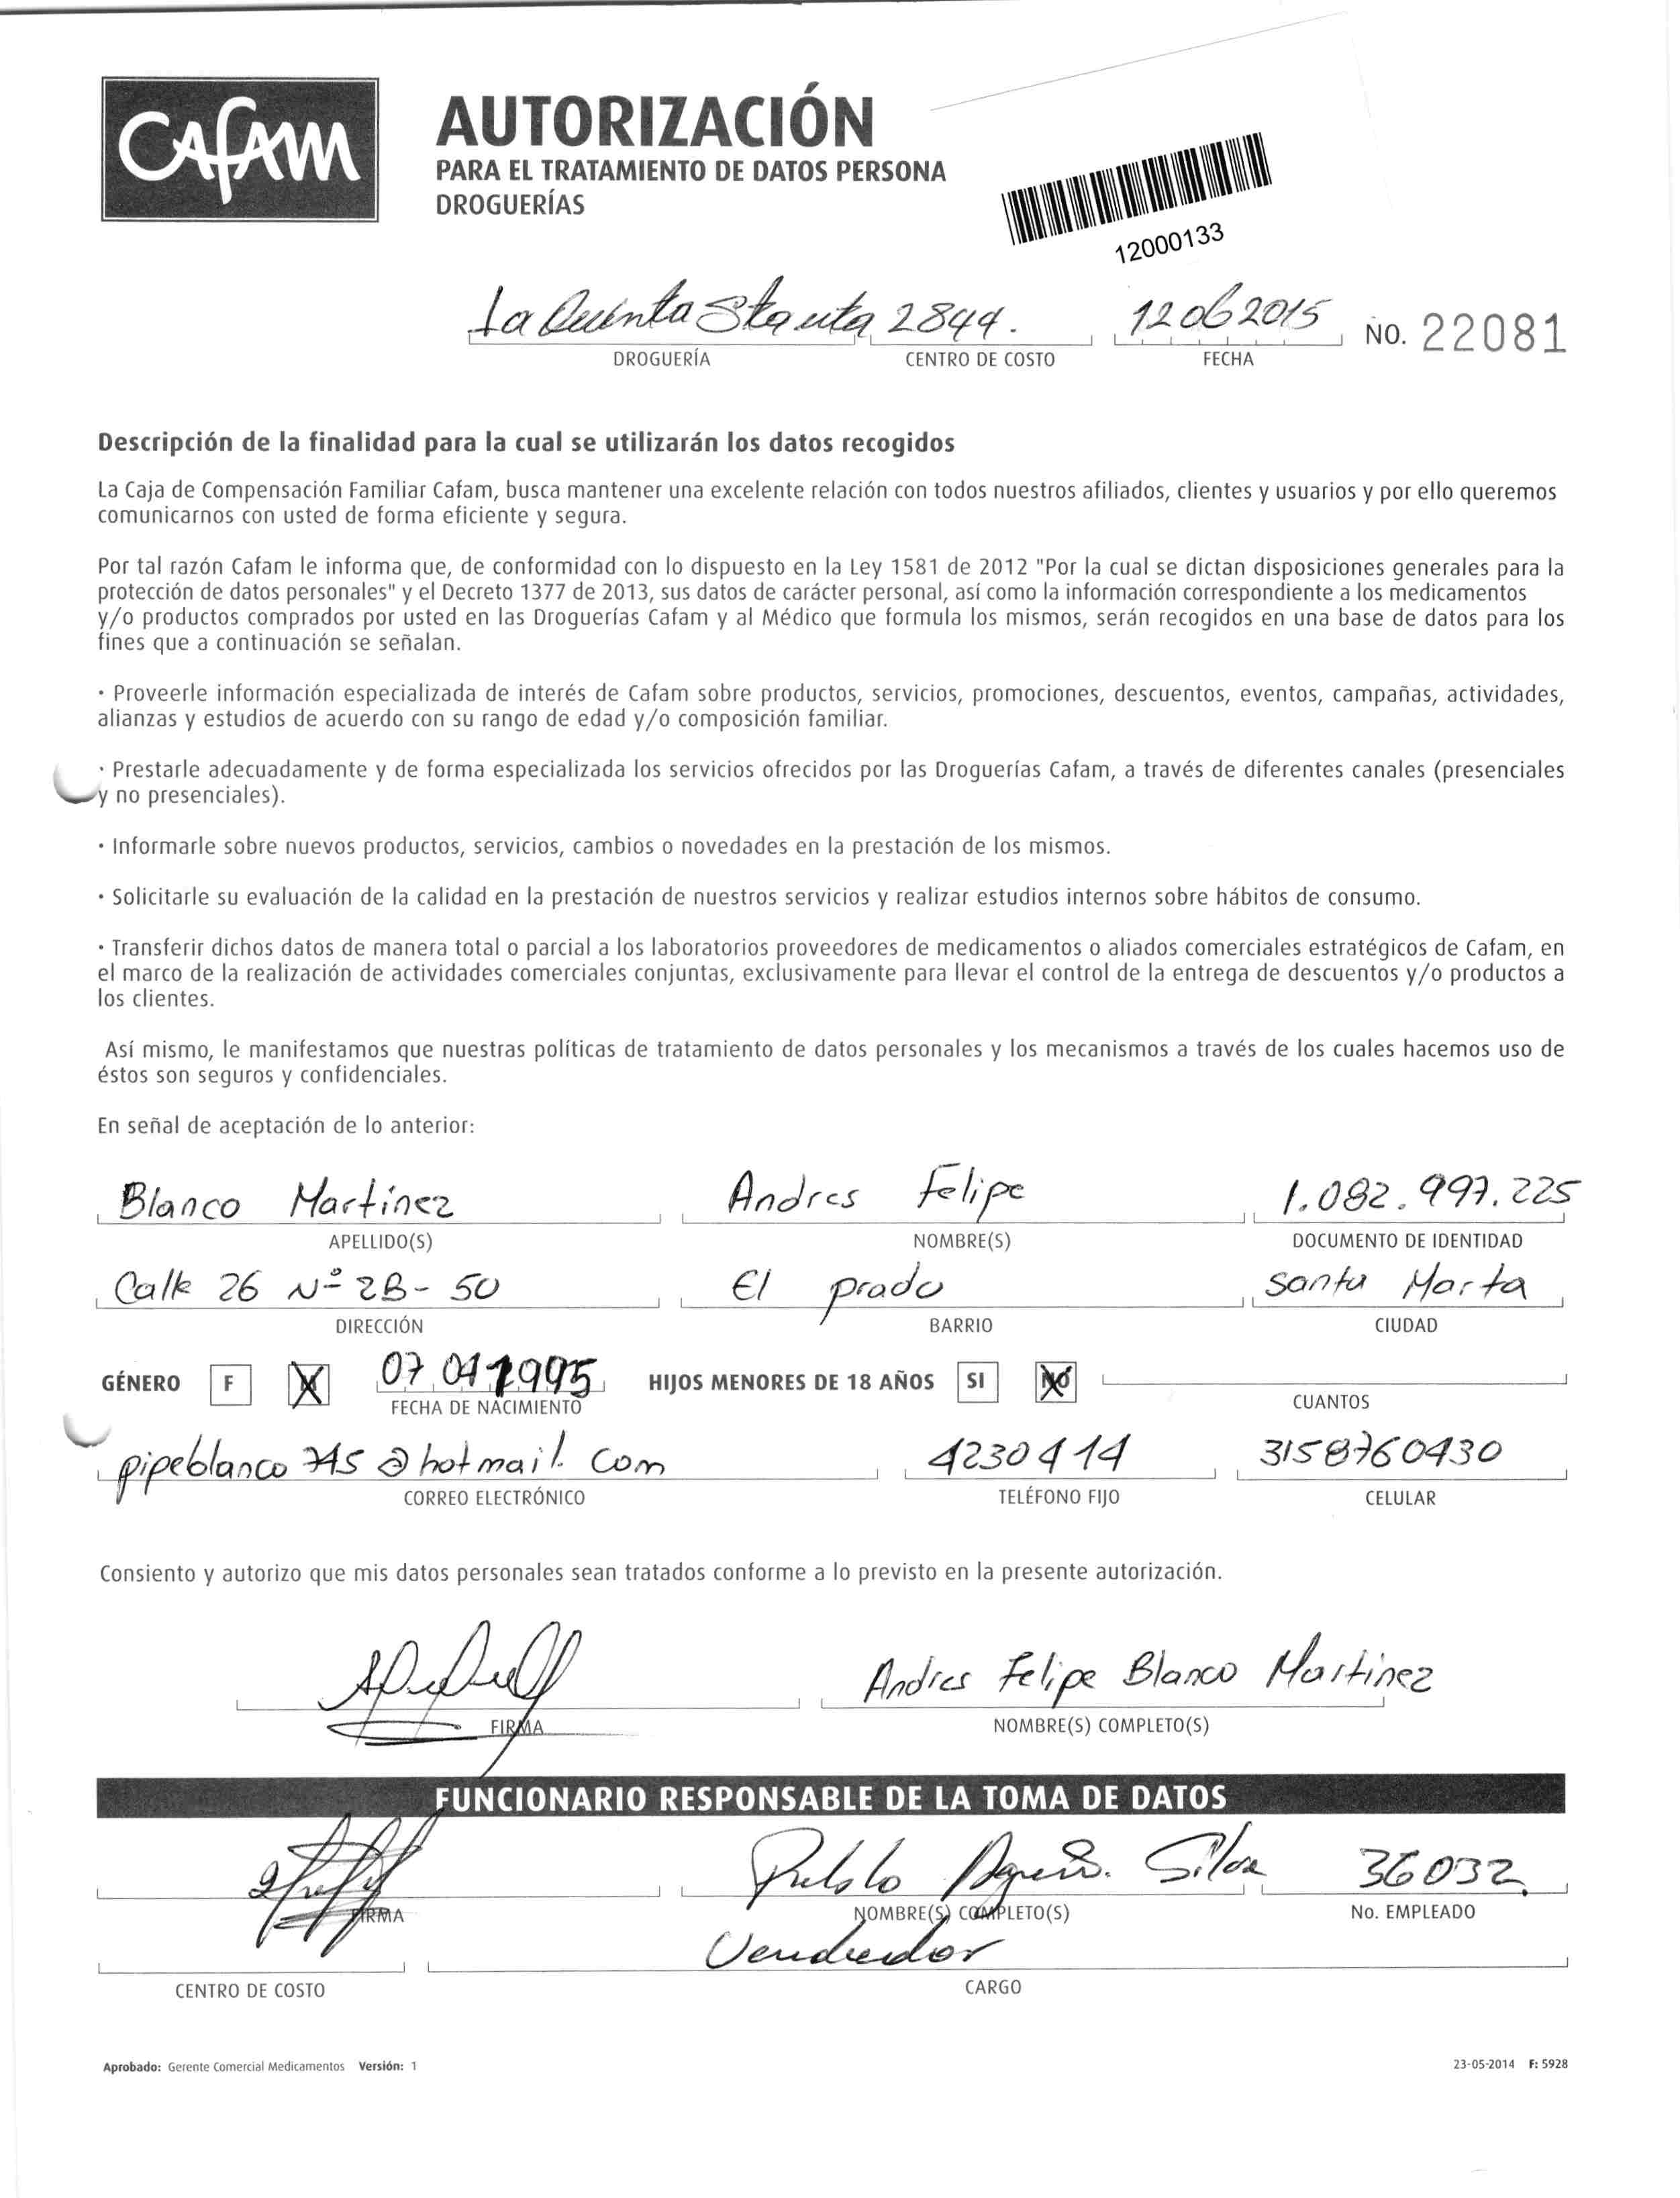 Cafam
AUTORIZACIÓN
PARA EL TRATAMIENTO DE DATOS PERSONA
DROGUERÍAS
12000133
La Quinta Sta 2844. 12 06 2015 NO. 22081
DROGUERÍA CENTRO DE COSTO FECHA
Descripción de la finalidad para la cual se utilizarán los datos recogidos
La Caja de Compensación Familiar Cafam, busca mantener una excelente relación con todos nuestros afiliados, clientes y usuarios y por ello queremos
comunicarnos con usted de forma eficiente y segura.
Por tal razón Cafam le informa que, de conformidad con lo dispuesto en la Ley 1581 de 2012 "Por la cual se dictan disposiciones generales para la
protección de datos personales" y el Decreto 1377 de 2013, sus datos de carácter personal, así como la información correspondiente a los medicamentos
y/o productos comprados por usted en las Droguerías Cafam y al Médico que formula los mismos, serán recogidos en una base de datos para los
fines que a continuación se señalan.
· Proveerle información especializada de interés de Cafam sobre productos, servicios, promociones, descuentos, eventos, campañas, actividades,
alianzas y estudios de acuerdo con su rango de edad y/o composición familiar.
· Prestarle adecuadamente y de forma especializada los servicios ofrecidos por las Droguerías Cafam, a través de diferentes canales (presenciales
y no presenciales).
· Informarle sobre nuevos productos, servicios, cambios o novedades en la prestación de los mismos.
· Solicitarle su evaluación de la calidad en la prestación de nuestros servicios y realizar estudios internos sobre hábitos de consumo.
· Transferir dichos datos de manera total o parcial a los laboratorios proveedores de medicamentos o aliados comerciales estratégicos de Cafam, en
el marco de la realización de actividades comerciales conjuntas, exclusivamente para llevar el control de la entrega de descuentos y/o productos a
los clientes.
Así mismo, le manifestamos que nuestras políticas de tratamiento de datos personales y los mecanismos a través de los cuales hacemos uso de
éstos son seguros y confidenciales.
En señal de aceptación de lo anterior:
Blanco Martinez Andres Felipe 1.082.997.225
APELLIDO(S) NOMBRE(S) DOCUMENTO DE IDENTIDAD
Calle 26 Nº 2B - 50 El prado Santa Marta
DIRECCIÓN BARRIO CIUDAD
GÉNERO F M 07 04 1995 HIJOS MENORES DE 18 AÑOS SI NO
FECHA DE NACIMIENTO CUANTOS
pipeblanco745@hotmail.com 4230414 3158760430
CORREO ELECTRÓNICO TELÉFONO FIJO CELULAR
Consiento y autorizo que mis datos personales sean tratados conforme a lo previsto en la presente autorización.
Andres Felipe Blanco Martinez
FIRMA NOMBRE(S) COMPLETO(S)
FUNCIONARIO RESPONSABLE DE LA TOMA DE DATOS
Silva 36032
FIRMA NOMBRE(S) COMPLETO(S) No. EMPLEADO
Vendedor
CENTRO DE COSTO CARGO
Aprobado: Gerente Comercial Medicamentos Versión: 1 23-05-2014 F: 5928